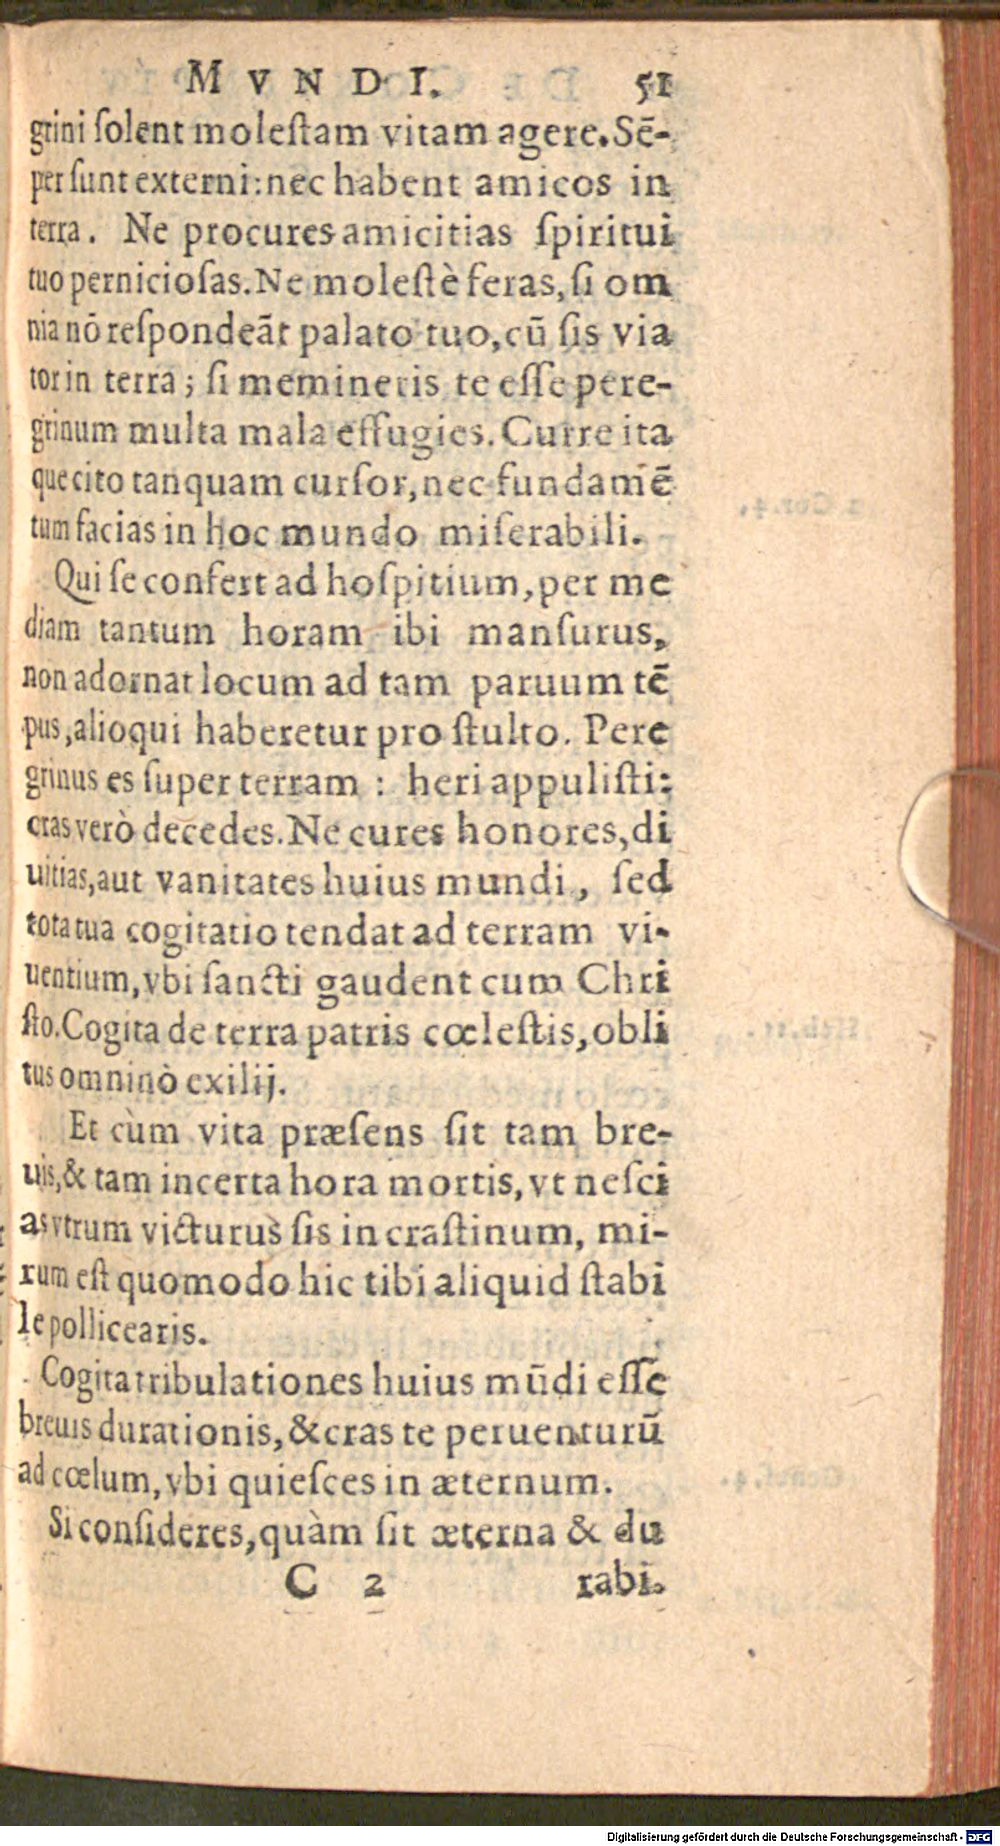 MVNDI. 51
grini ſolent moleſtam vitam agere. Sē-
per ſunt externi: nec habent amicos in
terra. Ne procures amicitias ſpiritui
tuo pernicioſas. Ne moleſtè feras, ſi om
nia nō reſpondeāt palato tuo, cū ſis via
tor in terra; ſi memineris te eſſe pere-
grinum multa mala effugies. Curre ita
que cito tanquam curſor, nec fundamē
tum facias in hoc mundo miſerabili.
Qui ſe confert ad hoſpitium, per me
diam tantum horam ibi manſurus,
non adornat locum ad tam paruum tē
pus, alioqui haberetur pro ſtulto. Pere
grinus es ſuper terram : heri appuliſti:
cras verò decedes. Ne cures honores, di
uitias, aut vanitates huius mundi, ſed
tota tua cogitatio tendat ad terram vi-
uentium, vbi ſancti gaudent cum Chri
ſto. Cogita de terra patris cœleſtis, obli
tus omninò exilij.
Et cùm vita præſens ſit tam bre-
uis, & tam incerta hora mortis, vt neſci
as vtrum victurus ſis in craſtinum, mi-
rum eſt quomodo hic tibi aliquid ſtabi
le pollicearis.
Cogita tribulationes huius mūdi eſſe
breuis durationis, & cras te peruenturū
ad cœlum, vbi quieſces in æternum.
Si conſideres, quàm ſit æterna & du
C 2 rabi-
Digitalisierung gefördert durch die Deutsche Forschungsgemeinschaft - DFG